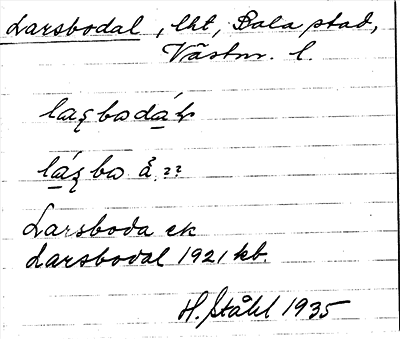 Larsbodal, lht, Sala stad,
Västm. l.
lázbo å ??
Larsboda ek
Larsbodal 1921 kb
H. Ståhl 1935